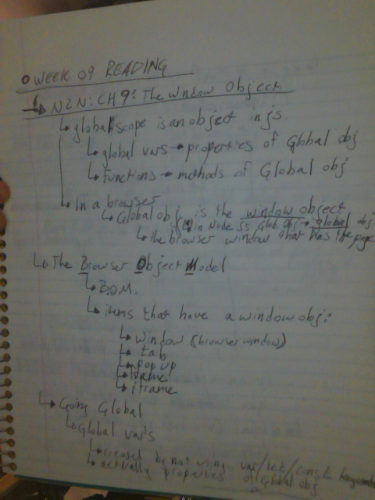 WEEK 09 READING
N2N: CH9: The Window Object
global scope is an object in js
global vars → properties of Global obj
Functions → methods of Global obj
In a browser
Global obj is the window object
in Node JS Glob Obj → global obj
the browser window that has the page
The Browser Object Model
B.O.M.
items that have a window obj:
window (browser window)
tab
popup
frame
iframe
Going Global
Global var's
created by not using var/let/const keywords
actually properties of Global obj